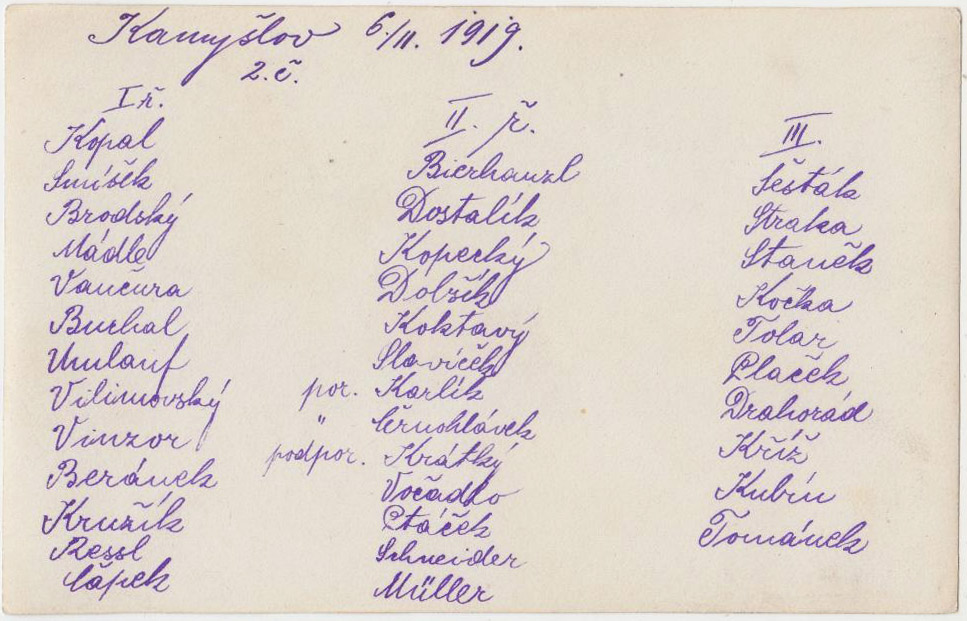 Kamyšlov 6/II. 1919.
2. č.
I ř.
Kopal
Smíšek
Brodský
Mádle
Vančura
Buchal
Umlauf
Vilimovský
Vinzor
Beránek
Kružík
Ressl
Čápek
II. ř.
Bierhanzl
Dostalík
Kopecký
Dolžík
Koktavý
Slavíček
por. Karlík
" Černohlávek
podpor. Krátký
Vočadlo
Ptáček
Schneider
Müller
III.
Šesták
Straka
Staněk
Kočka
Tolar
Plaček
Drahorád
Kříž
Kubín
Tománek